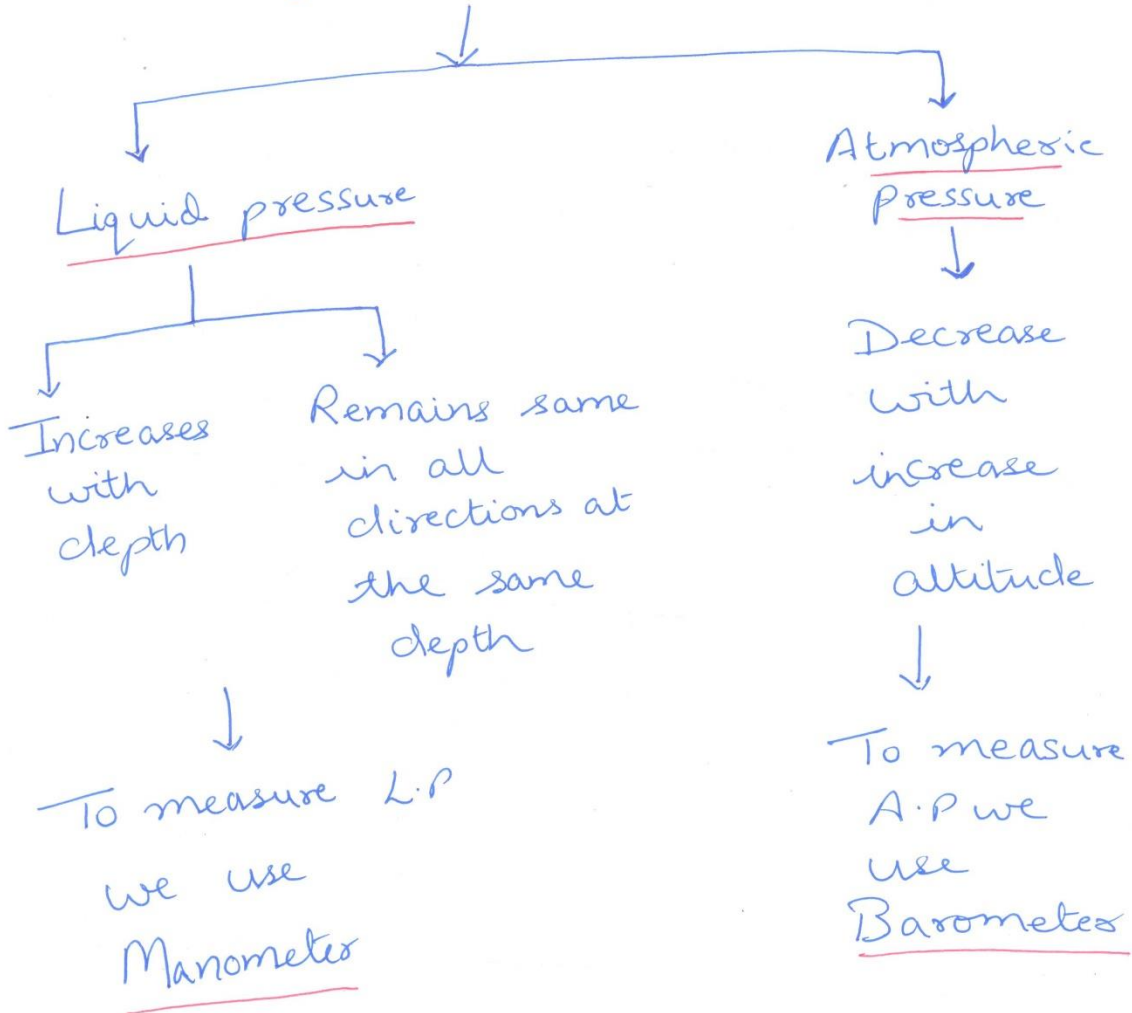 Liquid pressure
Increases
with
depth
Remains same
in all
directions at
the same
depth
To measure L.P
we use
Manometer
Atmospheric
Pressure
Decrease
with
increase
in
altitude
To measure
A.P we
use
Barometer